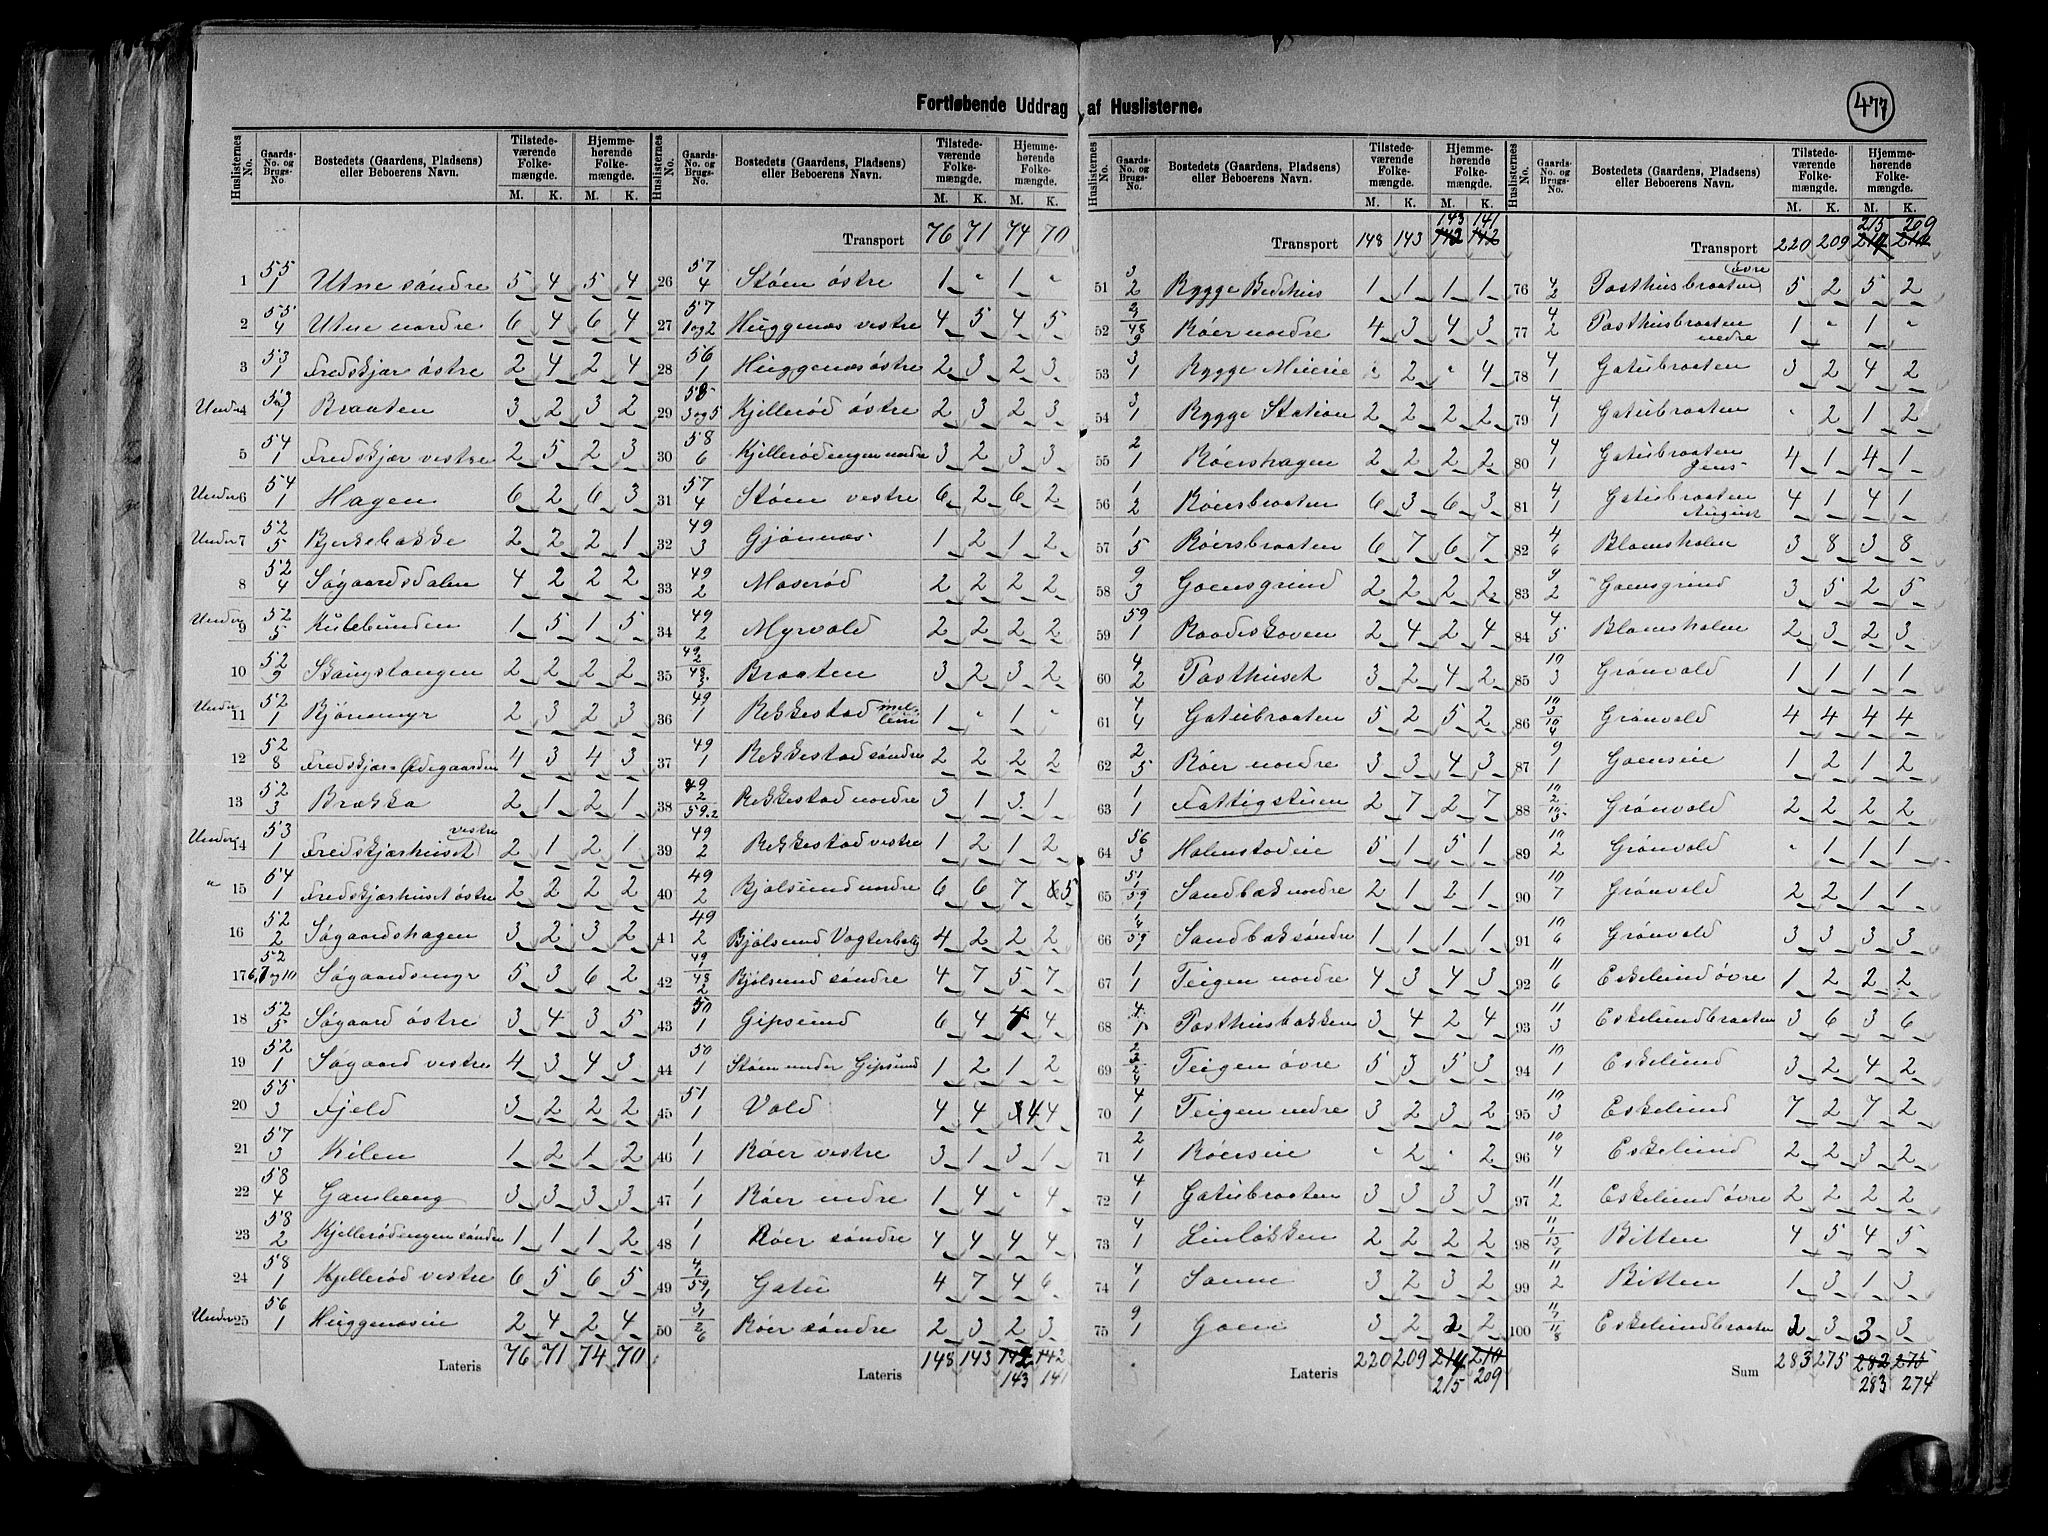 Fortløbende Uddrag af Huslisterne.
477
Huslisternes No. | Gaards-No. og Brugs-No. | Bostedets (Gaardens, Pladsens) eller Beboerens Navn. | Tilstedeværende Folkemængde. M. K. | Hjemmehørende Folkemængde. M. K.
1 55/1 Utne søndre 5 4 5 4
2 55/4 Utne nordre 6 4 6 4
3 53/1 Fredskjær østre 2 4 2 4
Under 4 53/1 Braaten 3 2 3 2
5 54/1 Fredskjær vestre 2 5 2 3
Under 6 54/1 Hagen 6 2 6 3
Under 7 52/5 Birkebakke 2 2 2 1
8 52/4 Søgaardsdalen 4 2 2 2
Under 9 52/5 Kulebunden 1 5 1 5
10 52/9 Skangstangen 2 2 2 2
Under 11 52/1 Bjønemyr 2 3 2 3
12 52/8 Fredskjær Ødegaarden 4 3 4 3
13 52/3 Brækka 2 1 2 1
Under 14 53/1 Fredskjærhuset vestre 2 1 2 1
" 15 54/1 Fredskjærhuset østre 2 2 2 2
16 52/2 Søgaardshagen 3 2 3 2
17 52/6,7 og 10 Søgaardsmyr 5 3 6 2
18 52/5 Søgaard østre 3 4 3 5
19 52/1 Søgaard vestre 4 3 4 3
20 55/3 Fjeld 3 2 2 2
21 57/3 Kilen 1 2 1 2
22 58/4 Gamleeng 3 3 3 3
23 58/2 Kjellerødengen søndre 1 1 1 2
24 58/1 Kjellerød vestre 6 5 6 5
Under 25 56/1 Huggenæsie 2 4 2 4
Lateris 76 71 74 70
Huslisternes No. | Gaards-No. og Brugs-No. | Bostedets (Gaardens, Pladsens) eller Beboerens Navn. | Tilstedeværende Folkemængde. M. K. | Hjemmehørende Folkemængde. M. K.
Transport 76 71 74 70
26 57/4 Støen østre 1 " 1 "
27 57/1og2 Huggenæs vestre 4 5 4 5
28 56/1 Huggenæs østre 2 3 2 3
29 58/3og5 Kjellerød østre 2 3 2 3
30 58/6 Kjellerødengen nordre 3 2 3 3
31 57/4 Støen vestre 6 2 6 2
32 49/3 Gjønnæs 1 2 1 2
33 49/2 Maserød 2 2 2 2
34 49/2 Myrvold 2 2 2 2
35 49/2 48/3 Braaten 3 2 3 2
36 49/1 Rekkestad mellem 1 " 1 "
37 49/1 Rekkestad søndre 2 2 2 2
38 49/2 59.2 Rekkestad nordre 3 1 3 1
39 49/2 Rekkestad vestre 1 2 1 2
40 49/2 Bjølsund nordre 6 6 7 5
41 49/2 Bjølsund Vogterbolig 4 2 2 2
42 49/1 48/2 Bjølsund søndre 4 7 5 7
43 50/1 Gipsund 6 4 4 4
44 50/1 Støen under Gipsund 1 2 1 2
45 51/1 Vold 4 4 4 4
46 1/1 Røer vestre 3 1 3 1
47 1/1 Røer nedre 1 4 " 4
48 1/1 Røer søndre 4 4 4 4
49 4/1 59/1 Gatu 4 7 4 6
50 3/1 2/6 Røer søndre 2 3 2 3
Lateris 148 143 142 142
143 141
Huslisternes No. | Gaards-No. og Brugs-No. | Bostedets (Gaardens, Pladsens) eller Beboerens Navn. | Tilstedeværende Folkemængde. M. K. | Hjemmehørende Folkemængde. M. K.
143 141
Transport 148 143 142 142
51 3/2 Rygge Bedehus 1 1 1 1
52 Røer nordre 4 3 4 3
53 3/1 Rygge Mieri " 2 " 4
54 3/1 Rygge Station 2 2 2 2
55 2/1 Røershagen 2 2 2 2
56 1/2 Røersbraaten 6 3 6 3
57 1/5 Røersbraaten 6 7 6 7
58 9/3 Goensgrind 2 2 2 2
59 59/1 Raadeskoven 2 4 2 4
60 4/2 Posthuset 3 2 4 2
61 4/4 Gatubraaten 5 2 5 2
62 2/5 Røer nordre 3 3 4 3
63 1/1 Fattigstuen 2 7 2 7
64 56/3 Holenstadie 5 1 5 1
65 51/1 59/1 Sandbæk nordre 2 1 2 1
66 4/59 Sandbæk søndre 1 1 1 1
67 1/1 Teigen nordre 4 3 4 3
68 4/1 Posthusbakken 3 4 2 4
69 2/3 2/4 Teigen øvre 5 3 5 3
70 4/1 Teigen nedre 3 2 3 2
71 2/1 Røersie " 2 " 2
72 4/1 Gatubraaten 3 3 3 3
73 4/1 Linløkken 2 2 2 2
74 4/1 Sanne 3 2 3 2
75 9/1 Goen 3 2 2 2
Lateris 220 209 214 210
215 209
Huslisternes No. | Gaards-No. og Brugs-No. | Bostedets (Gaardens, Pladsens) eller Beboerens Navn. | Tilstedeværende Folkemængde. M. K. | Hjemmehørende Folkemængde. M. K.
215 209
Transport 220 209 214 210
76 4/2 Posthusbraaten øvre 5 2 5 2
77 4/2 Posthusbraaten nedre 1 " 1 "
78 4/1 Gatubraaten 3 2 4 2
79 4/1 Gatubraaten " 2 1 2
80 4/1 Gatubraaten Jens 4 1 4 1
81 4/1 Gatubraaten August 4 1 4 1
82 4/6 Blomsholm 3 8 3 8
83 9/2 Goensgrind 3 5 2 5
84 4/5 Blomsholm 2 3 2 3
85 10/3 Grønvold 1 1 1 1
86 10/3 10/4 Grønvold 4 4 4 4
87 9/1 Goensie 1 2 1 2
88 10/2 10/5 Grønvold 2 2 2 2
89 10/2 Grønvold " 1 1 1
90 10/7 Grønvold 2 2 1 1
91 10/6 Grønvold 3 3 3 3
92 11/6 Eskelund øvre 1 2 2 2
93 11/3 Eskelundbraaten 3 6 3 6
94 10/1 Eskelund 3 2 4 2
95 10/3 Eskelund 7 2 7 2
96 10/4 Eskelund 2 2 3 2
97 11/2 Eskelund øvre 2 2 2 2
98 11/1 13/1 Bitten 4 5 4 5
99 11/2 Bitten 1 3 1 3
100 11/7 11/8 Eskelundbraaten 2 3 3 3
Sum 283 275 282 275
283 274